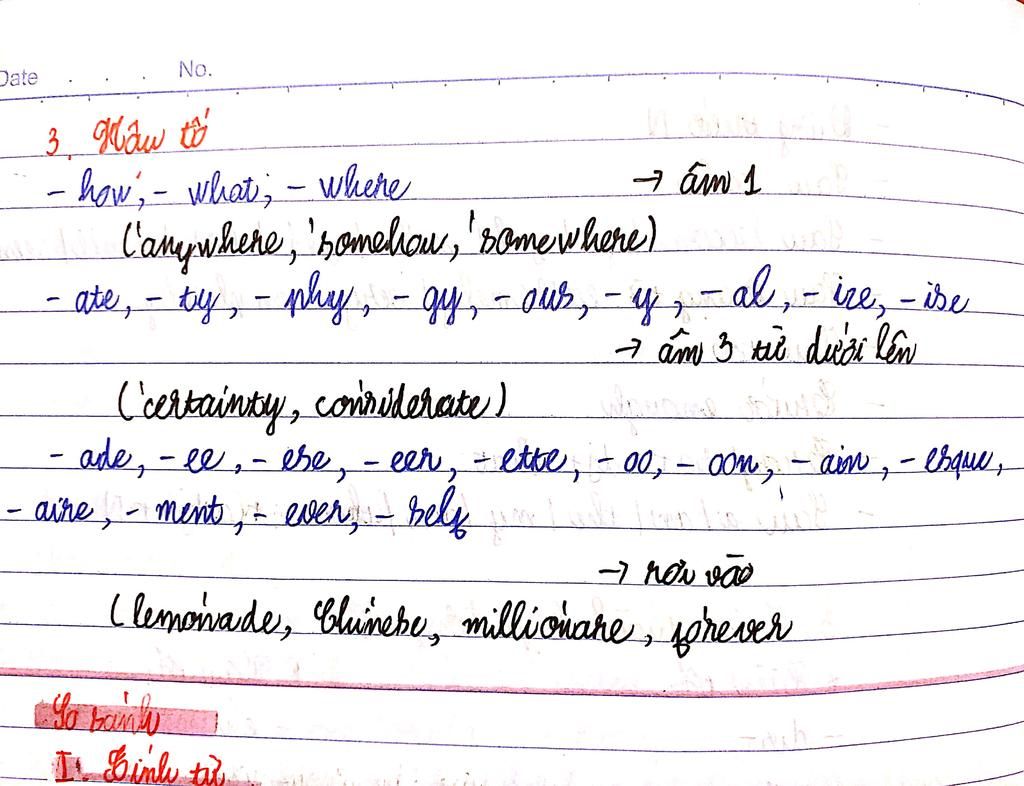 Date . . . No.
3. Hậu tố
- how, - what, - where → âm 1
('anywhere, 'somehow, 'somewhere)
- ate, - ty, - phy, - gy, - ous, - y, - al, - ize, - ise
→ âm 3 từ dưới lên
('certainty, con'siderate)
- ade, - ee, - ese, - eer, - ette, - oo, - oon, - ain, - esque,
- aire, - ment, - ever, - self
→ rơi vào
(lemo'nade, Chi'nese, millio'nare, for'ever
So sánh
I. Tính từ